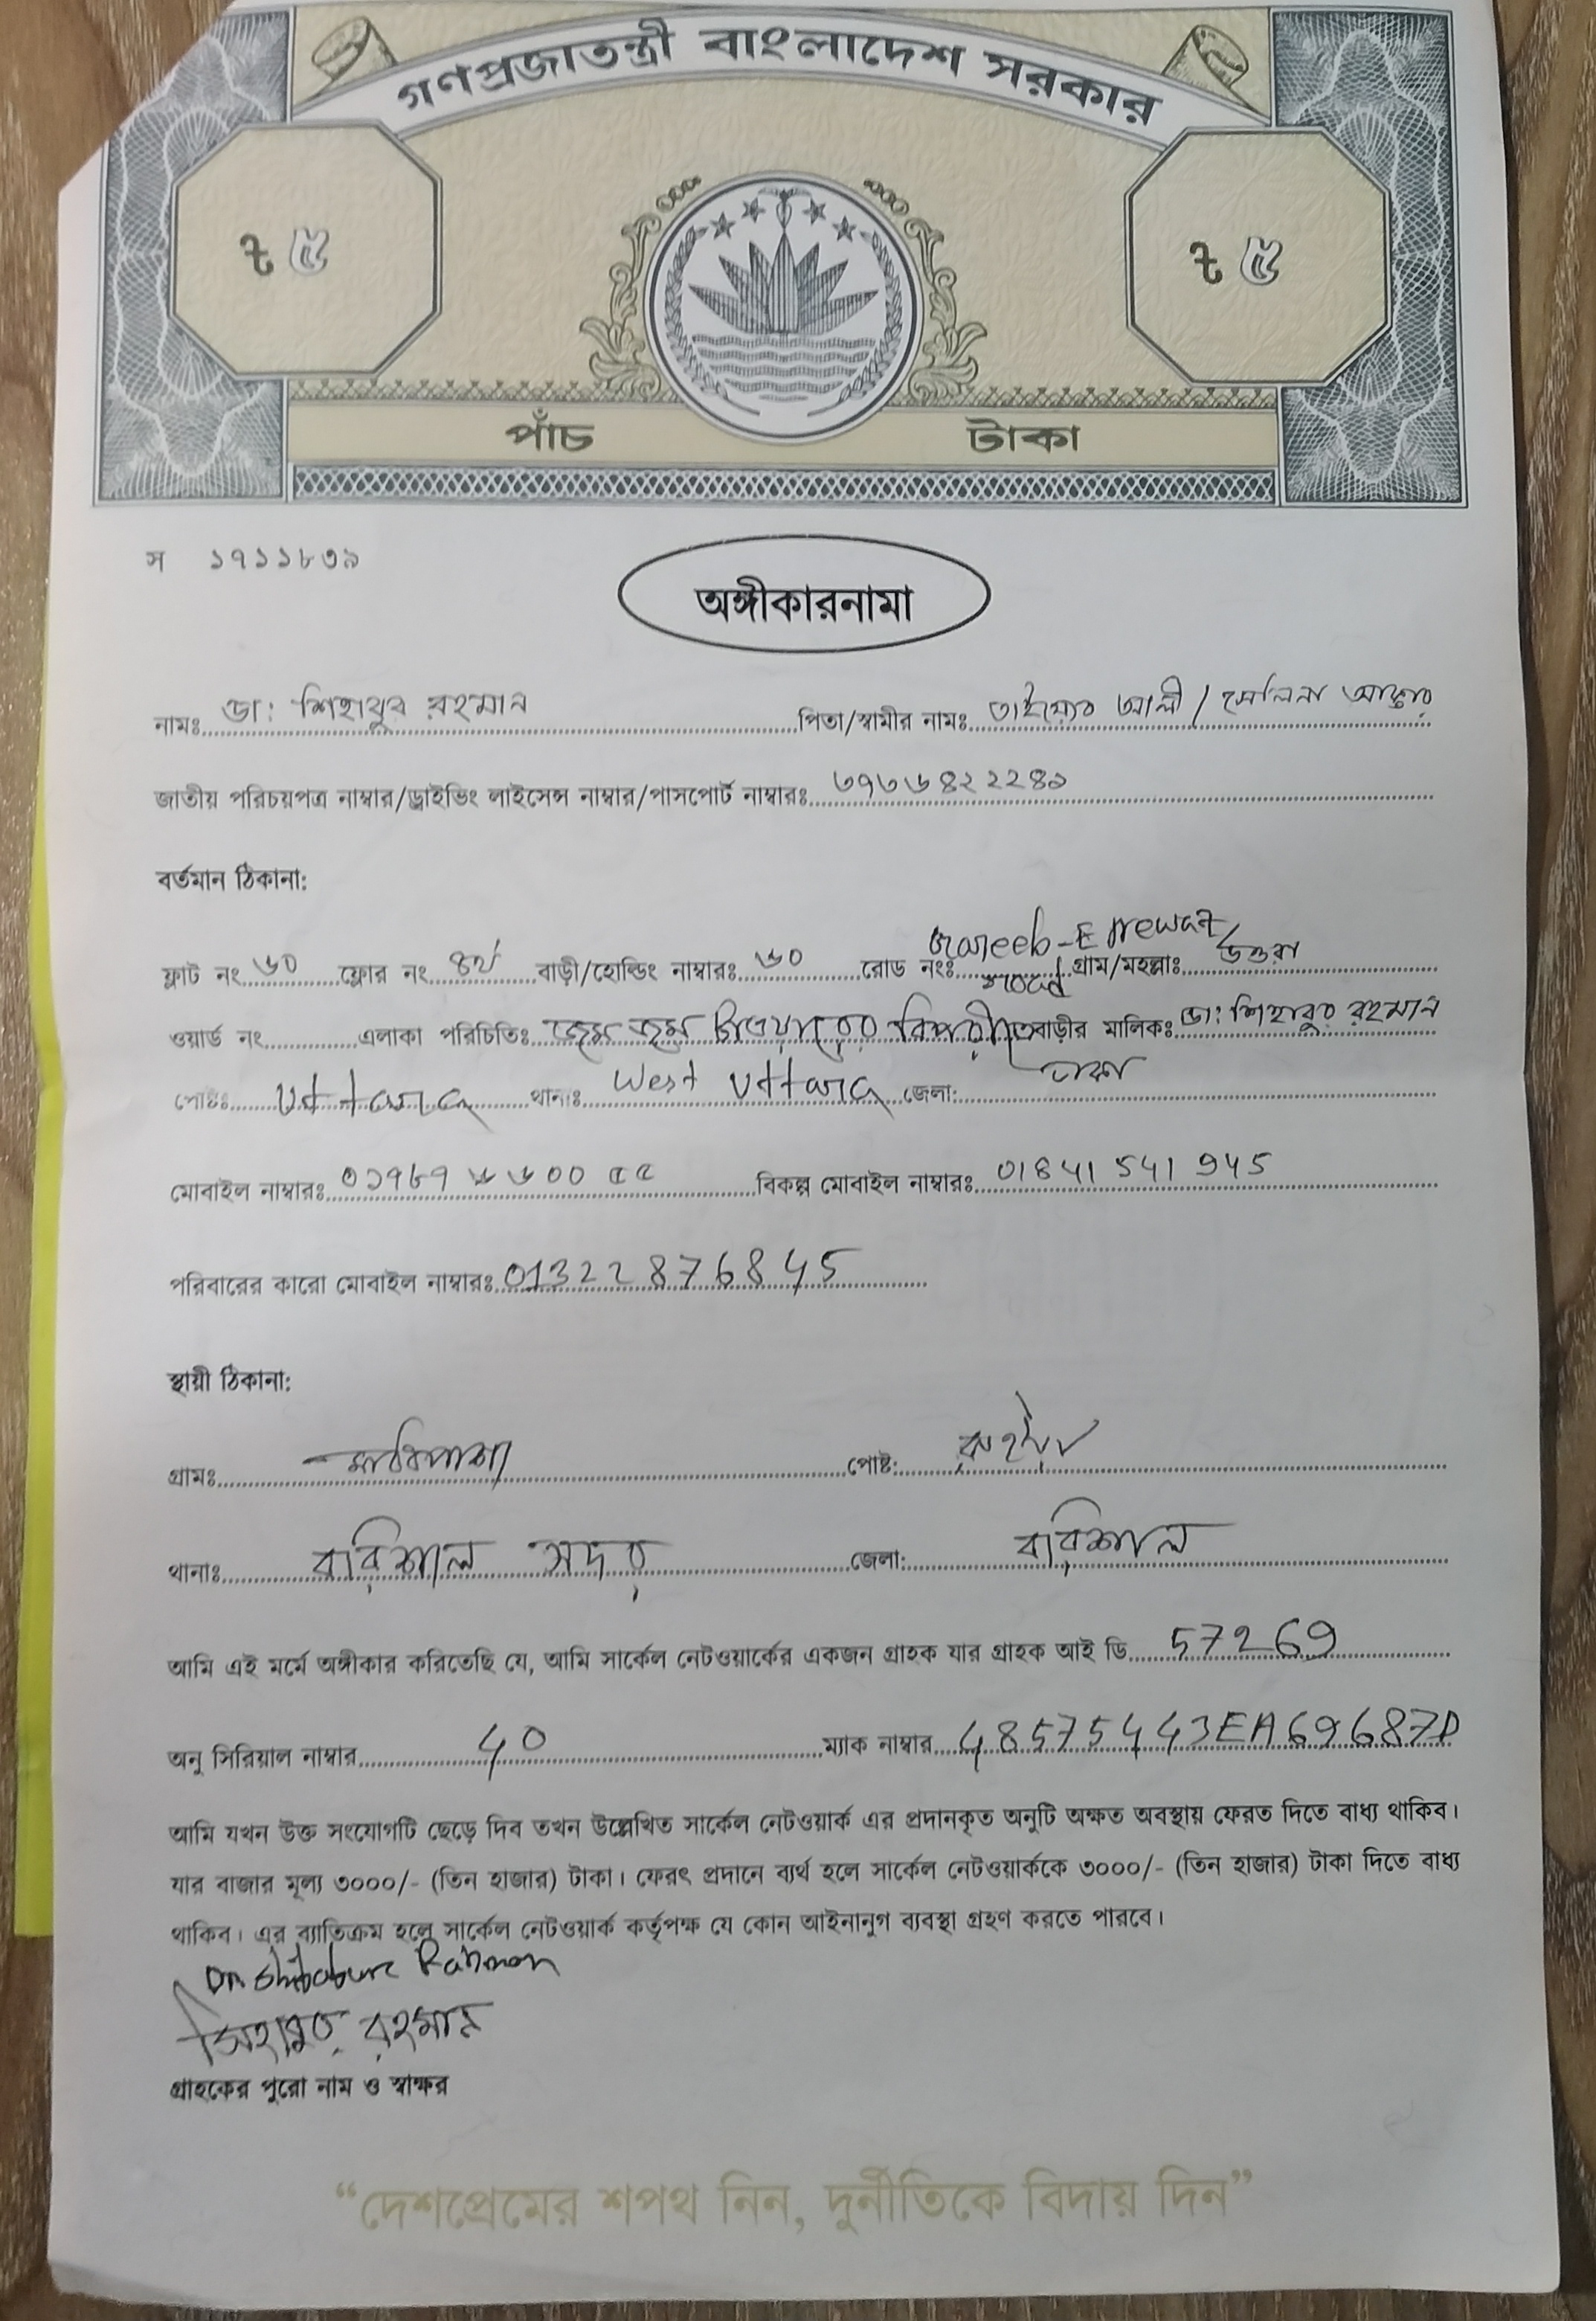 গণপ্রজাতন্ত্রী বাংলাদেশ সরকার
৳ ৫ ৳ ৫
পাঁচ টাকা
স ১৭১১৮৩৯
অঙ্গীকারনামা
নামঃ ডা: শিহাবুর রহমান পিতা/স্বামীর নামঃ তাইয়্যেব আলী / সেলিনা আক্তার
জাতীয় পরিচয়পত্র নাম্বার/ড্রাইভিং লাইসেন্স নাম্বার/পাসপোর্ট নাম্বারঃ ৩৭৩৬৪২২২৪৯
বর্তমান ঠিকানা:
ফ্লাট নং ৬০ ফ্লোর নং ৪র্থ বাড়ী/হোল্ডিং নাম্বারঃ ৬০ রোড নংঃ Gareeb-E Newaz road গ্রাম/মহল্লাঃ উত্তরা
ওয়ার্ড নং এলাকা পরিচিতিঃ জম জম টাওয়ারের বিপরীতে বাড়ীর মালিকঃ ডা: শিহাবুর রহমান
পোষ্টঃ Uttara থানাঃ West Uttara জেলা: ঢাকা
মোবাইল নাম্বারঃ ০১৭৮৭ ৬৬০০ ৫৫ বিকল্প মোবাইল নাম্বারঃ 01841 541 945
পরিবারের কারো মোবাইল নাম্বারঃ 01322876845
স্থায়ী ঠিকানা:
গ্রামঃ পোষ্ট:
থানাঃ বরিশাল সদর জেলা: বরিশাল
আমি এই মর্মে অঙ্গীকার করিতেছি যে, আমি সার্কেল নেটওয়ার্কের একজন গ্রাহক যার গ্রাহক আই ডি 57269
অনু সিরিয়াল নাম্বার 40 ম্যাক নাম্বার 48575443EA69687D
আমি যখন উক্ত সংযোগটি ছেড়ে দিব তখন উল্লেখিত সার্কেল নেটওয়ার্ক এর প্রদানকৃত অনুটি অক্ষত অবস্থায় ফেরত দিতে বাধ্য থাকিব।
যার বাজার মূল্য ৩০০০/- (তিন হাজার) টাকা। ফেরৎ প্রদানে ব্যর্থ হলে সার্কেল নেটওয়ার্ককে ৩০০০/- (তিন হাজার) টাকা দিতে বাধ্য
থাকিব। এর ব্যাতিক্রম হলে সার্কেল নেটওয়ার্ক কর্তৃপক্ষ যে কোন আইনানুগ ব্যবস্থা গ্রহণ করতে পারবে।
Dr Shihabur Rahman
শিহাবুর রহমান
গ্রাহকের পুরো নাম ও স্বাক্ষর
“দেশপ্রেমের শপথ নিন, দুর্নীতিকে বিদায় দিন”